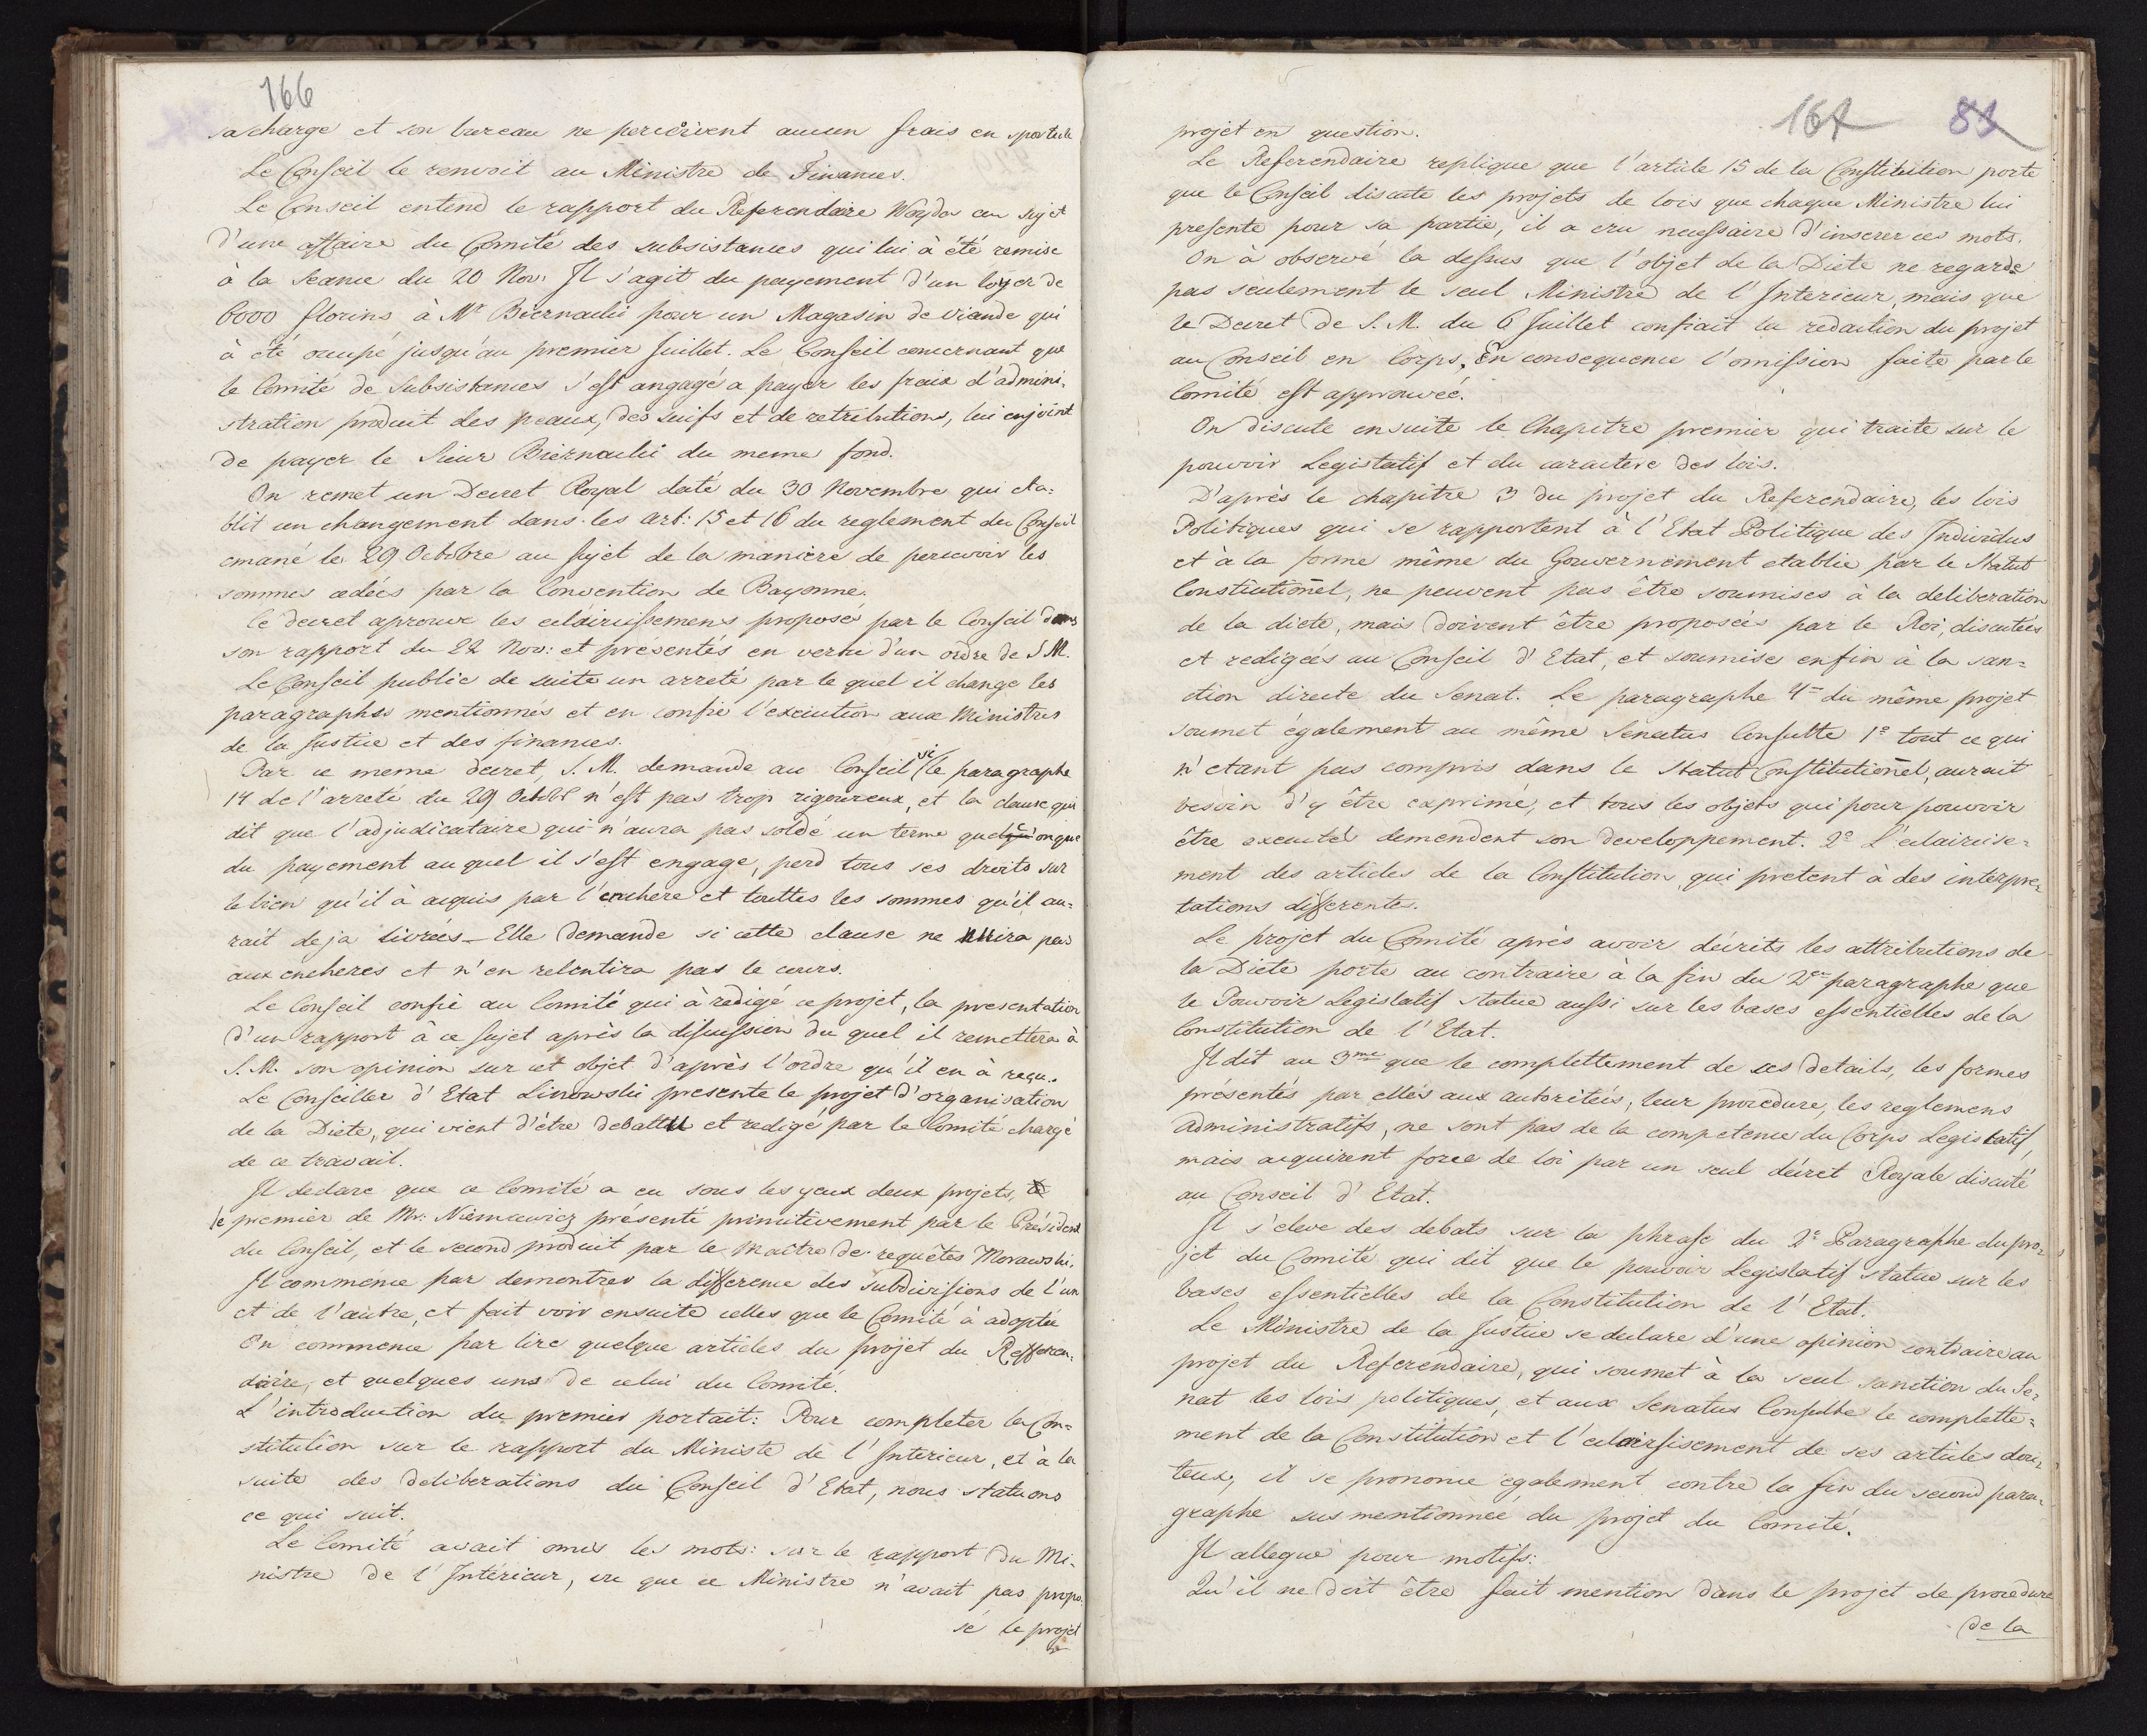 166
sa charge et son bureau ne perçoivent aucun frais en sportule
Le Conseil le renvoit au Ministre de Finances.
Le Conseil entend le rapport du Referendaire Woyda au sujet
d'une affaire du Comité des subsistances qui lui à été remise
à la Seance du 20 Nov: Il s'agit du payement d'un loyer de
6000 florins à Mr Biernacki pour un Magasin de viande qui
à été occupé jusqu'au premier Juillet. Le Conseil concernant que
le Comite de Subsistances s'est angagé a payer les fraix d'admini-
stration produit des peaux, des suifs et de retributions, lui enjoint
de payer le Sieur Biernacki du meme fond.
On remet un Decret Royal daté du 30 Novembre qui eta=
blit un changement dans les art: 15 et 16 du reglement du Conseil
emané le 29 Octobre au sujet de la maniere de percevoir les
sommes cedées par la Convention de Bayonne.
Ce decret aprouve les eclaircissemens proposés par le Conseil dans
son rapport du 22 Nov: et présentés en vertu d'un ordre de S.M.
Le Conseil publie de suite un arreté par le quel il change les
paragraphes mentionnés et en confie l'execution aux Ministres
de la Justice et des finances.
Par ce meme decret, S. M. demande au Conseil si le paragraphe
14 de l'arreté du 29 Octobr n'est pas trop rigoureux, et la clause, qui
dit que l'adjudicataire qui n'aura pas soldé un terme quelconque
du payement au quel il s'est engage, perd tous ses droits sur
le bien qu'il à acquis par l'enchere et touttes les sommes qu'il au=
rait deja livrées_ Elle demande si cette clause ne nuira pas
aux encheres et n'en relentira pas le cours.
Le Conseil confie au Comité qui à redigé ce projet, la presentation
d'un rapport à ce sujet après la discussion du quel il remettera à
S. M. son opinion sur cet objet d'après l'ordre qu'il en à reçu.
Le Conseiller d'Etat Linowski presente le projet d'organisation
de la Diete, qui vient d'être debattu et redigé par le Comité chargé
de ce travail.
Il declare que ce Comité a eu sous les yeux deux projets,
le premier de Mr. Niemcewicz présenté primitivement par le Président
du Conseil, et le second produit par le Maître de requêtes Morawski.
Il commence par demontrer la difference des subdivisions de l'un
et de l'autre, et fait voir ensuite celles que le Comité à adoptée
On commence par lire quelque articles du projet du Refferen-
daire, et quelques uns de celui du Comité.
L'introduction du premier portait: Pour completer la Con=
stitution sur le rapport du Ministe de l'Interieur, et à la
suite des deliberations du Conseil d'Etat, nous statuons
ce qui suit.
Le Comité avait omis les mots: sur le rapport du Mi-
nistre de l'Intérieur, vu que ce Ministre n'avait pas propo-
sé le projet
167 83
projet en question.
Le Referendaire replique que l'article 15 de la Constitution porte
que le Conseil discute les projets de lois que chaque Ministre lui
presente pour sa partie, il a cru necessaire d'inserer ces mots.
On à observé la dessus que l'objet de la Diete ne regarde
pas seulement le seul Ministre de l'Interieur, mais que
le Decret de S. M. du 6 Juillet confiait la redaction du projet
au Conseil en Corps, En consequence l'omission faite par le
Comité est approuvée.
On discute ensuite le Chapitre premier qui traite sur le
pouvoir Legislatif et du caractere des lois.
D'après le chapitre 3 du projet du Referendaire, les lois
Politiques qui se rapportent à l'Etat Politique des Individus
et à la forme même du Gouvernement etablie par le Statut
Constitutionel, ne peuvent pas être soumises à la deliberation
de la diete, mais doivent être proposées par le Roi, discutées
et redigées au Conseil d'Etat, et soumise enfin à la san=
ction directe du Senat. Le paragraphe 4me du même projet
soumet également au même Senatus Consulte 1º tout ce qui
n'etant pas compris dans le Statut Constitutionel, aurait
besoin d'y être exprimé, et tous les objets qui pour pouvoir
être executé demendent son developpement. 2º L'eclaircise=
ment des articles de la Constitution, qui pretent à des interpre=
tations differentes.
Le projet du Comité après avoir décrits les attributions de
la Diete porte au contraire à la fin du 2de paragraphe que
le Pouvoir Legislatif statue aussi sur les bases essentielles de la
Constitution de l'Etat.
Il dit au 3me que le complettement de ces details, les formes
présentés par elles aux autorités, leur procedure, les reglemens
administratifs, ne sont pas de la competence du Corps Legislatif,
mais acquirent force de loi par un seul décret Royale discuté
au Conseil d'Etat.
Il s'eleve des debats sur la phrase du 2e Paragraphe du pro=
jet du Comite qui dit que le pouvoir Legislatif statue sur les
bases essentielles de la Constitution de l'Etat.
Le Ministre de la Justice se declare d'une opinion contraire au
projet du Referendaire, qui soumet à la seul sanction du Se=
nat les lois politiques, et aux Senatus Consulte le complette=
ment de la Constitution et l'eclaircissement de ses articles dou=
teux, il se prononce egalement contre la fin du second para=
graphe sus mentionnée du projet du Comité.
Il allegue pour motifs:
Qu'il ne doit être fait mention dans le projet de procedure
de la